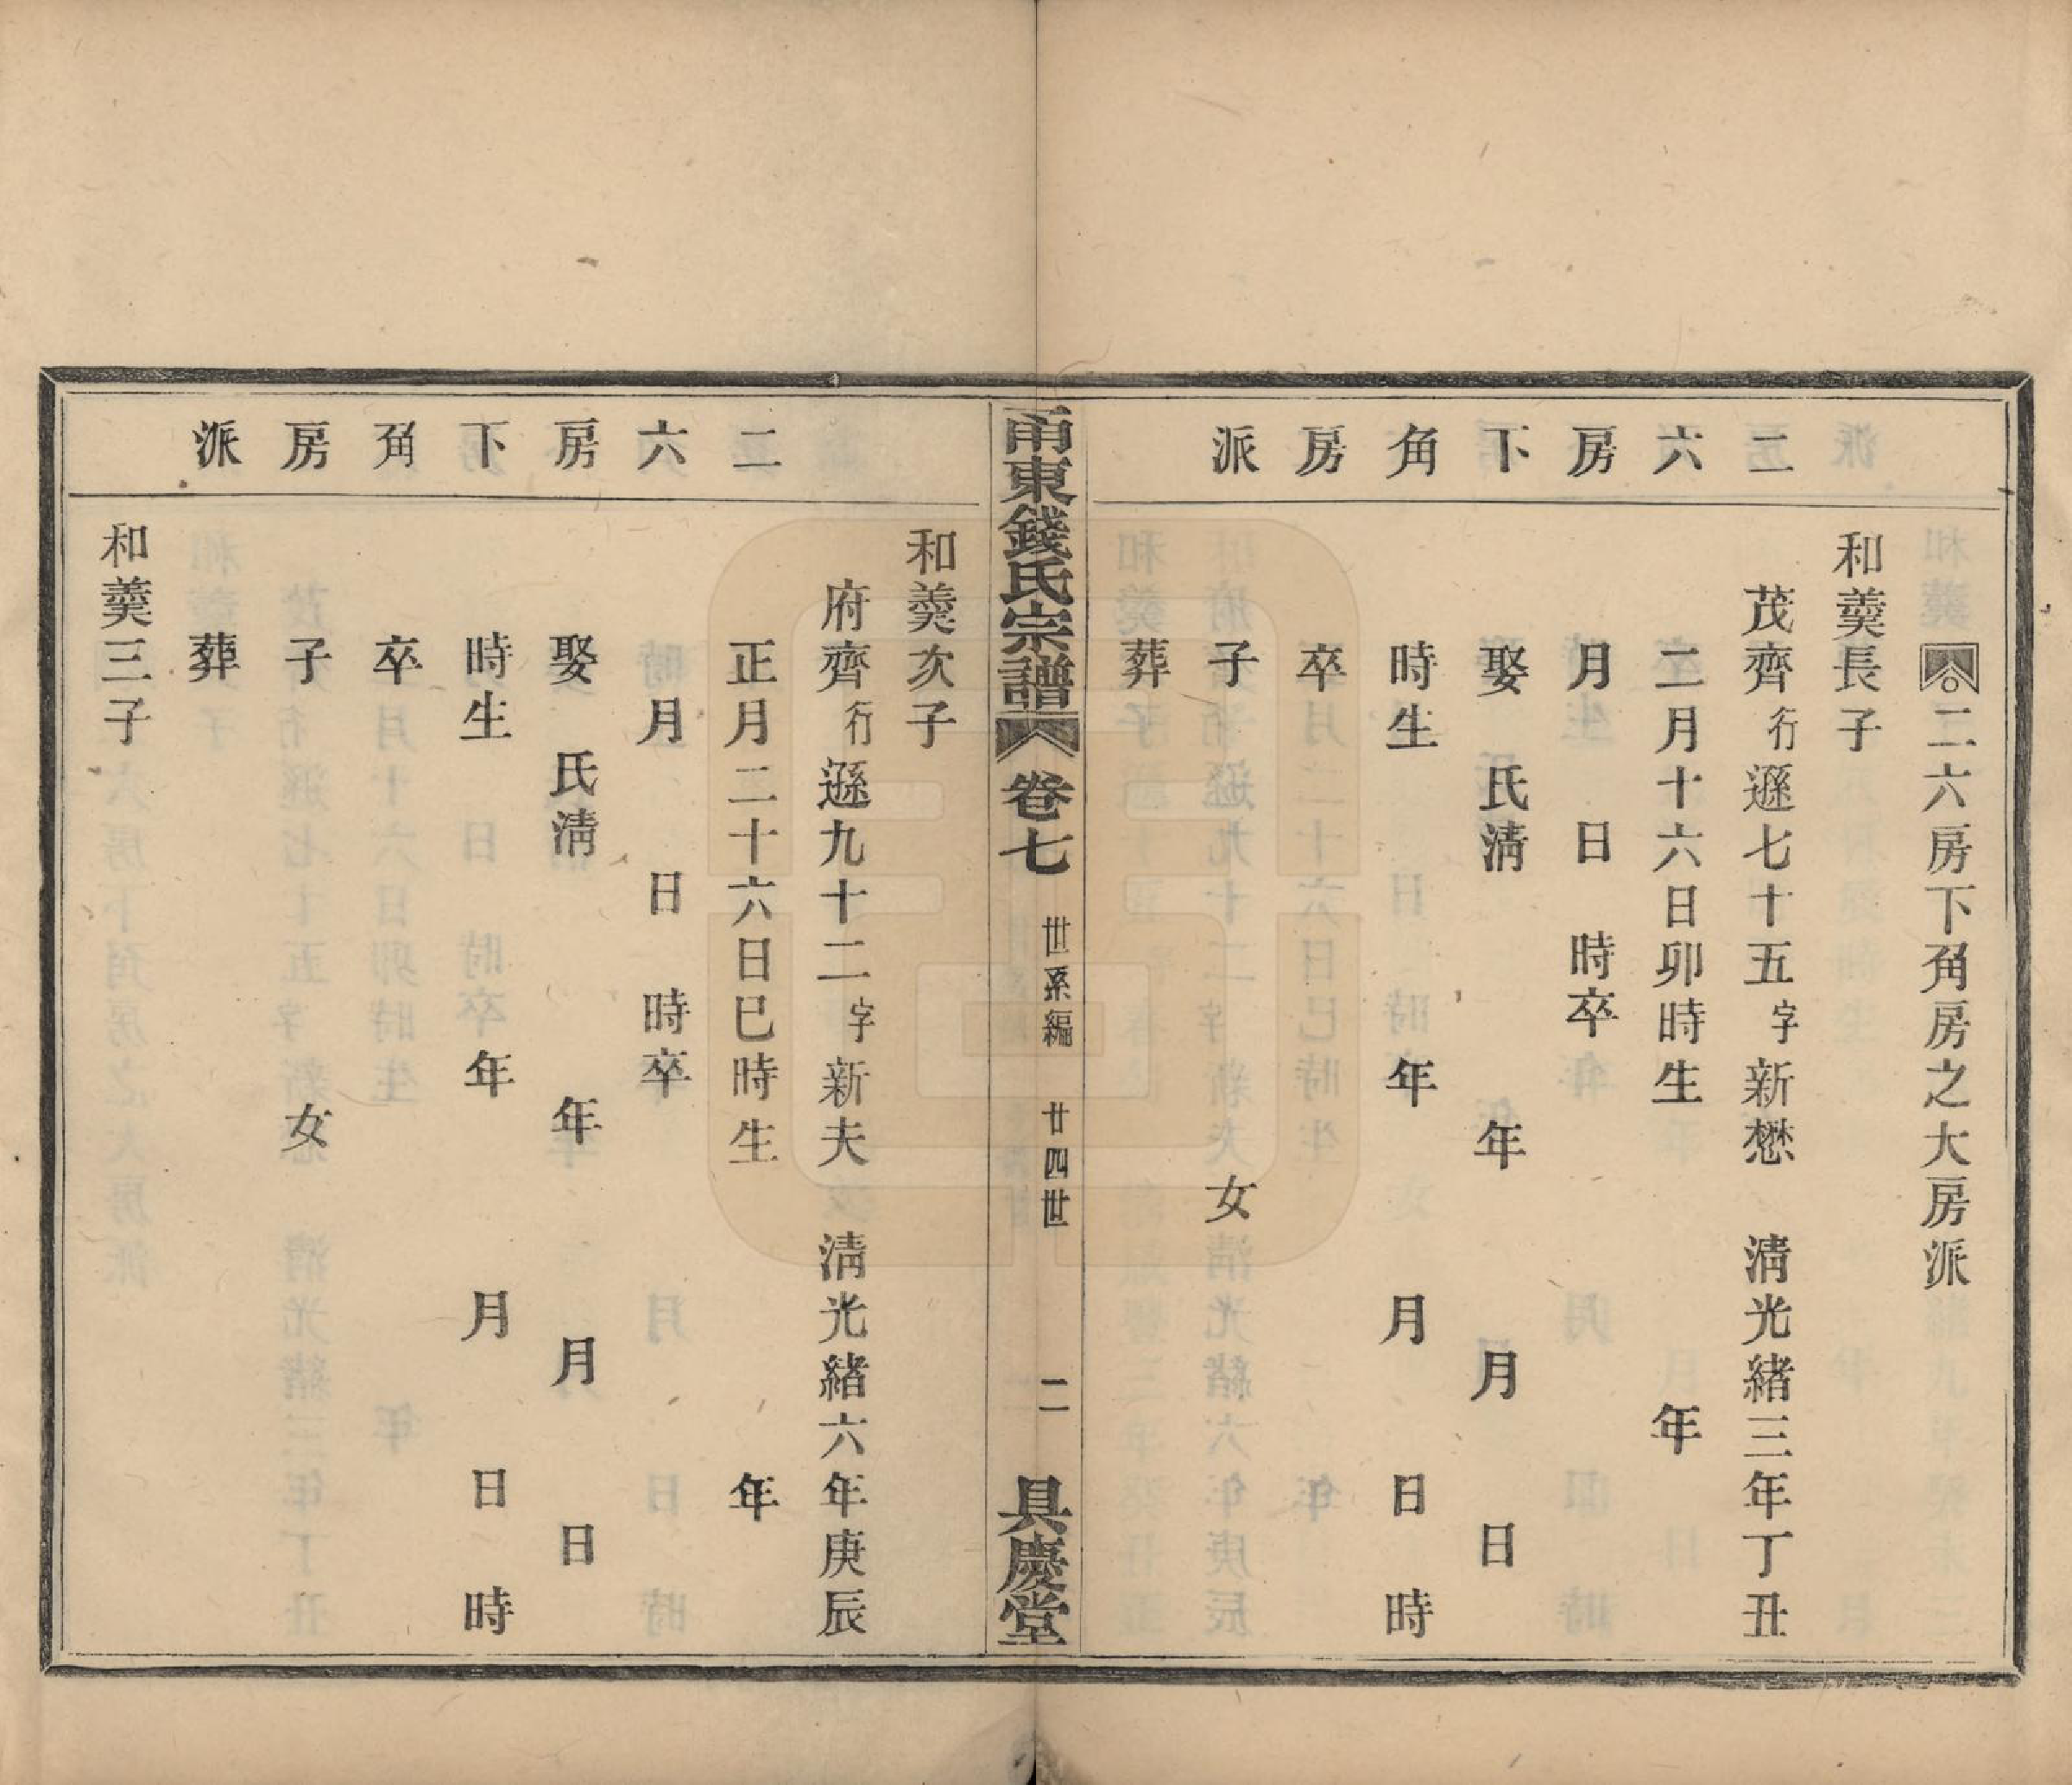 二六房下角房派
二六房下角房之大房派
和羹長子
茂齊行遜七十五字新懋 清光緒三年丁丑
二月十六日卯時生 年
月 日 時卒
娶 氏清 年 月 日
時生 年 月 日 時
卒
子 女
葬
甬東錢氏宗譜 卷七 世系編 廿四世 二 具慶堂
二六房下角房派
和羹次子
府齊行遜九十二字新夫 清光緒六年庚辰
正月二十六日巳時生 年
月 日 時卒
娶 氏清 年 月 日
時生 年 月 日 時
卒
子 女
葬
和羹三子